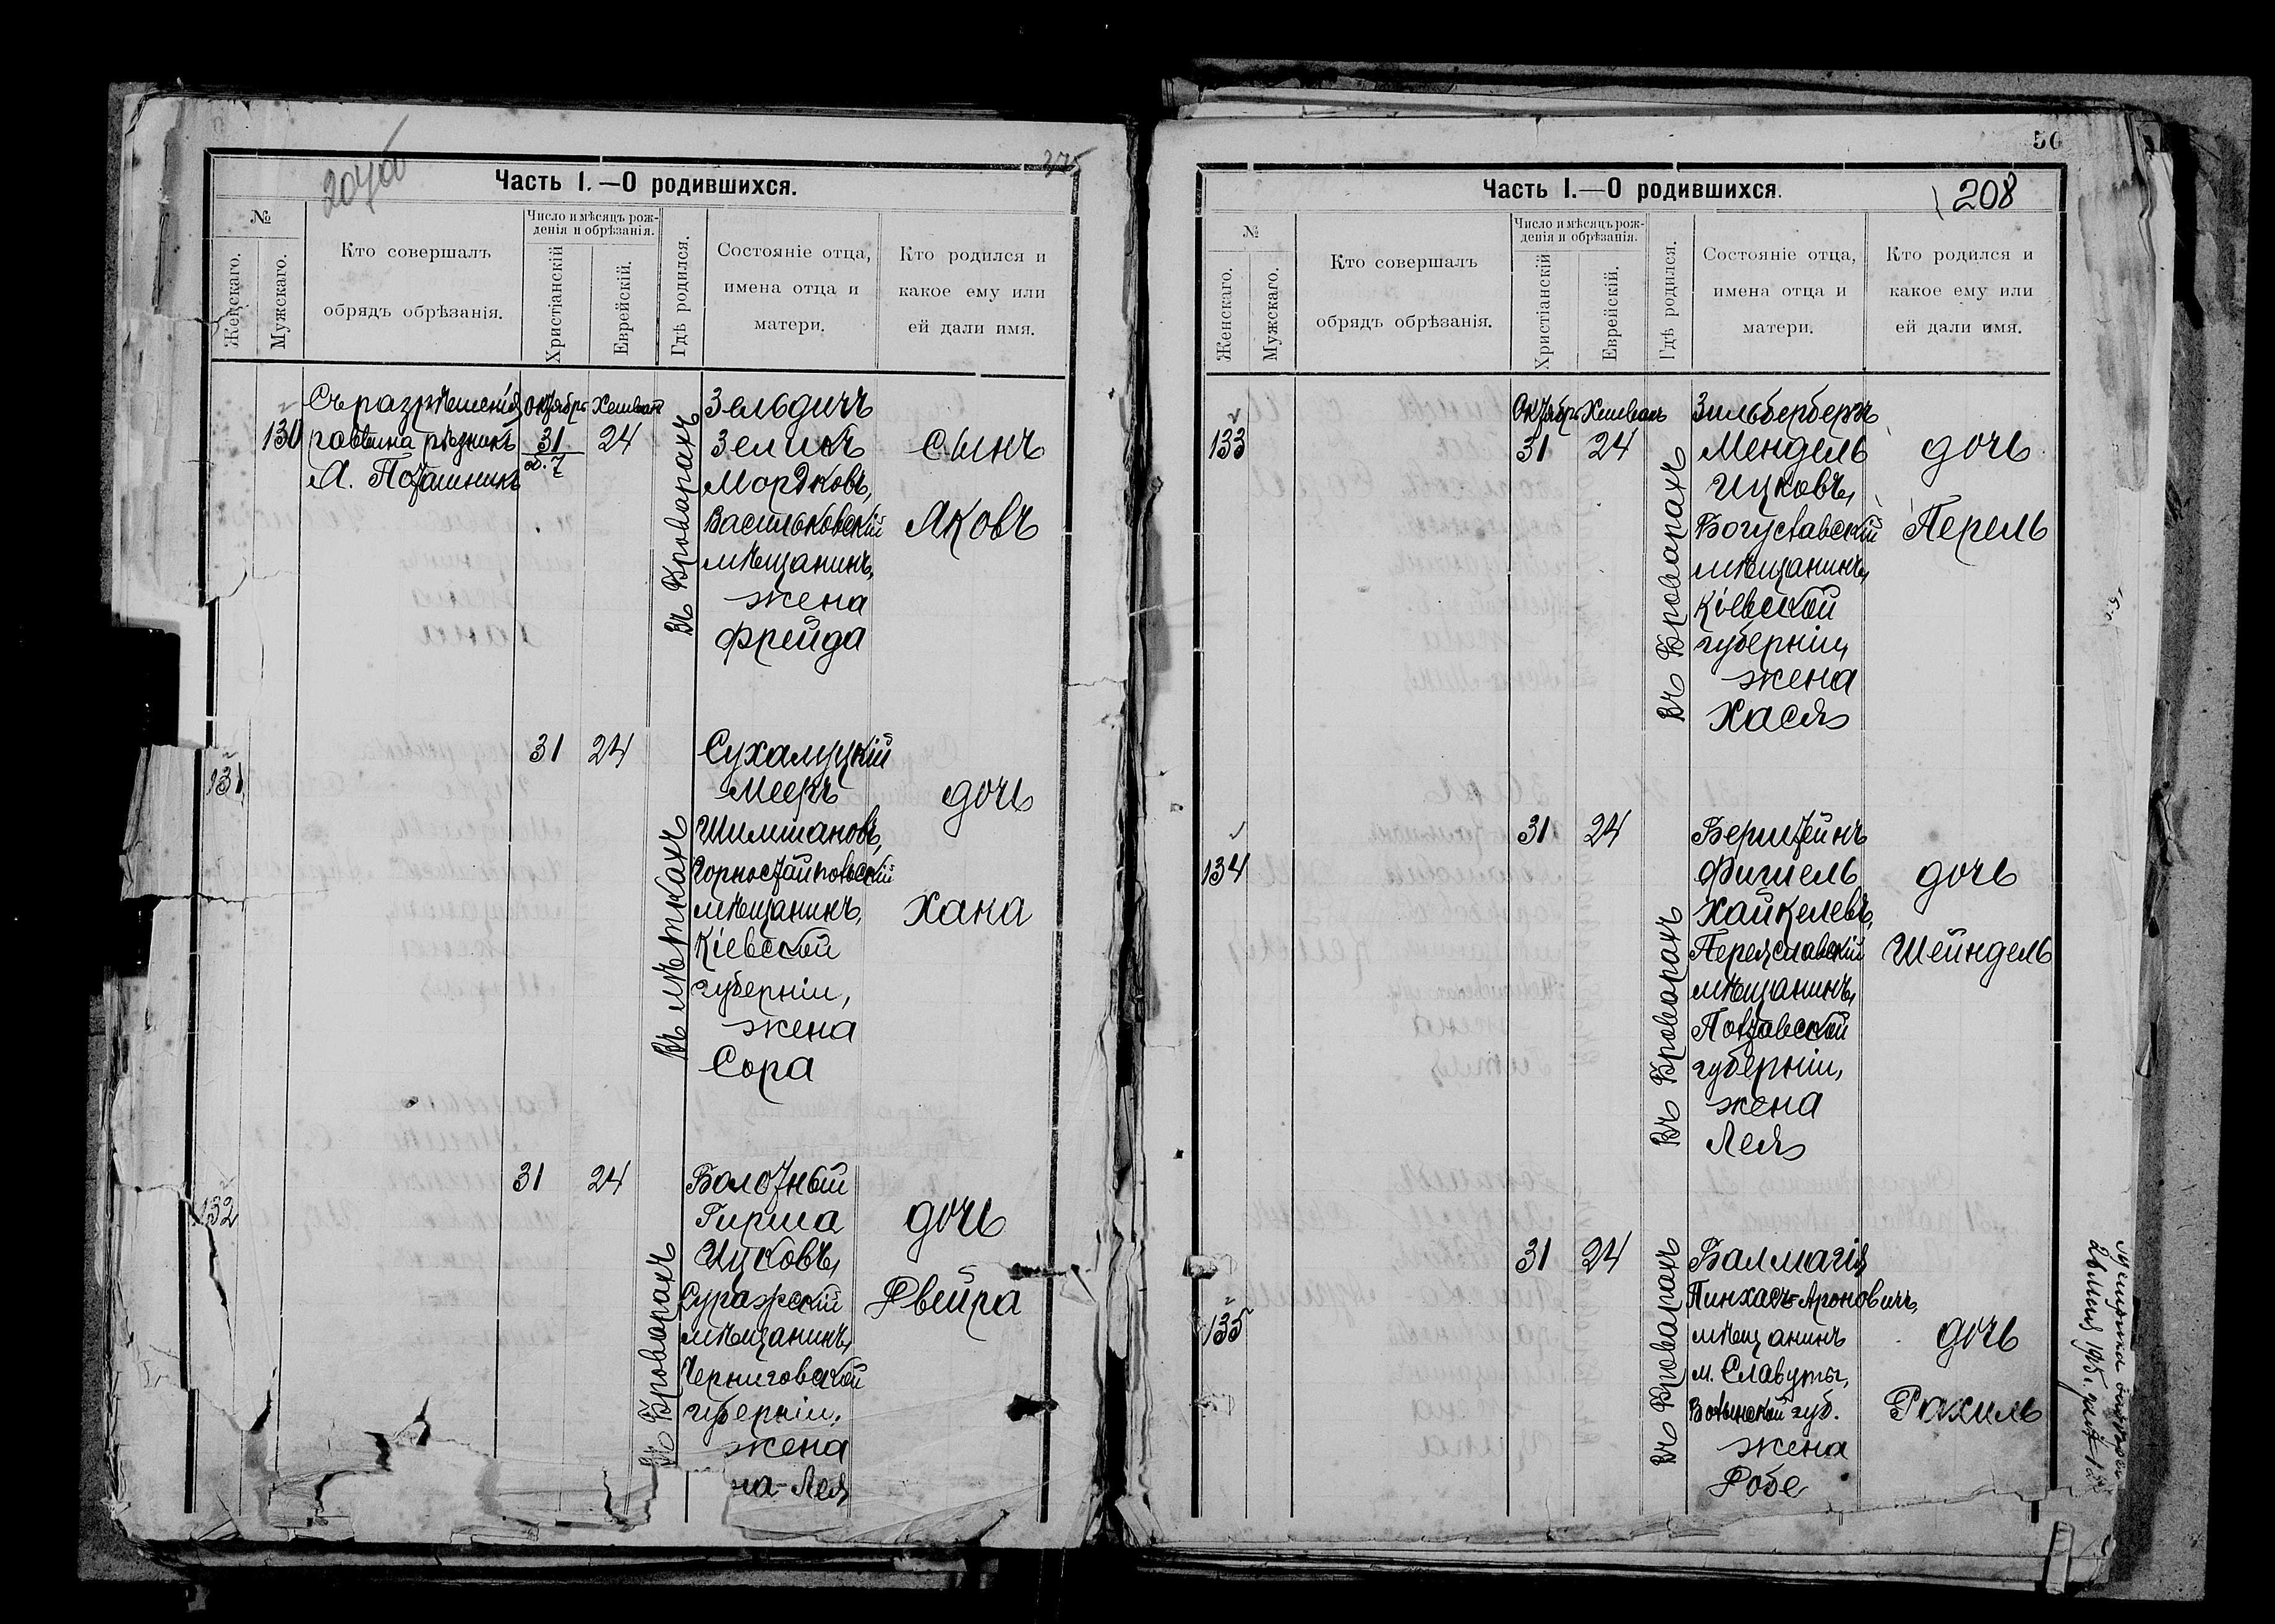 275
Часть I.—О родившихся.
№
Женскаго.
Мужскаго.
Кто совершалъ
обрядъ обрѣзанія.
Число и мѣсяцъ рож-
денія и обрѣзанія.
Христіанскій
Еврейскій.
Гдѣ родился.
Состояніе отца,
имена отца и
матери.
Кто родился и
какое ему или
ей дали имя.
130
Съ разрѣшенія
раввина рѣзникъ
А. Поташникъ
Октябрь
31
об. 7
Хешван
24
Въ Броварахъ
Зельдичъ
Зеликъ
Мордковъ,
Васильковскій
мѣщанинъ,
жена
Фрейда
сынъ
Яковъ
131
31
24
Въ Лѣткахъ
Сухалуцкій
Меер
Шимшановъ,
Горностайпольскій
мѣщанинъ,
Кіевской
губерніи,
жена
Сора
дочь
Хана
132
31
24
Въ Броварахъ
Болотный
Гирша
Ицковъ,
Суражскій
мѣщанинъ,
Черниговской
губерніи,
жена
на-Лея
дочь
Двейра
50
Часть I.—О родившихся.
208
№
Женскаго.
Мужскаго.
Кто совершалъ
обрядъ обрѣзанія.
Число и мѣсяцъ рож-
денія и обрѣзанія.
Христіанскій
Еврейскій.
Гдѣ родился.
Состояніе отца,
имена отца и
матери.
Кто родился и
какое ему или
ей дали имя.
133
Октябрь
31
Хешванъ
24
Въ Броварахъ
Зильбербергъ
Мендель
Ицковъ,
Богуславскій
мѣщанинъ,
Кіевской
губерніи,
жена
Хася
дочь
Перель
134
31
24
Въ Броварахъ
Берштейнъ
Фишель
Хайкелевъ,
Переяславскій
мѣщанинъ,
Полтавской
губерніи,
жена
Лея
дочь
Шейндель
135
31
24
Въ Броварахъ
Балмагія
Пинхасъ-Ароновичъ,
мѣщанинъ
м. Славуты,
Волынской губ.
жена
Робе
дочь
Рахиль